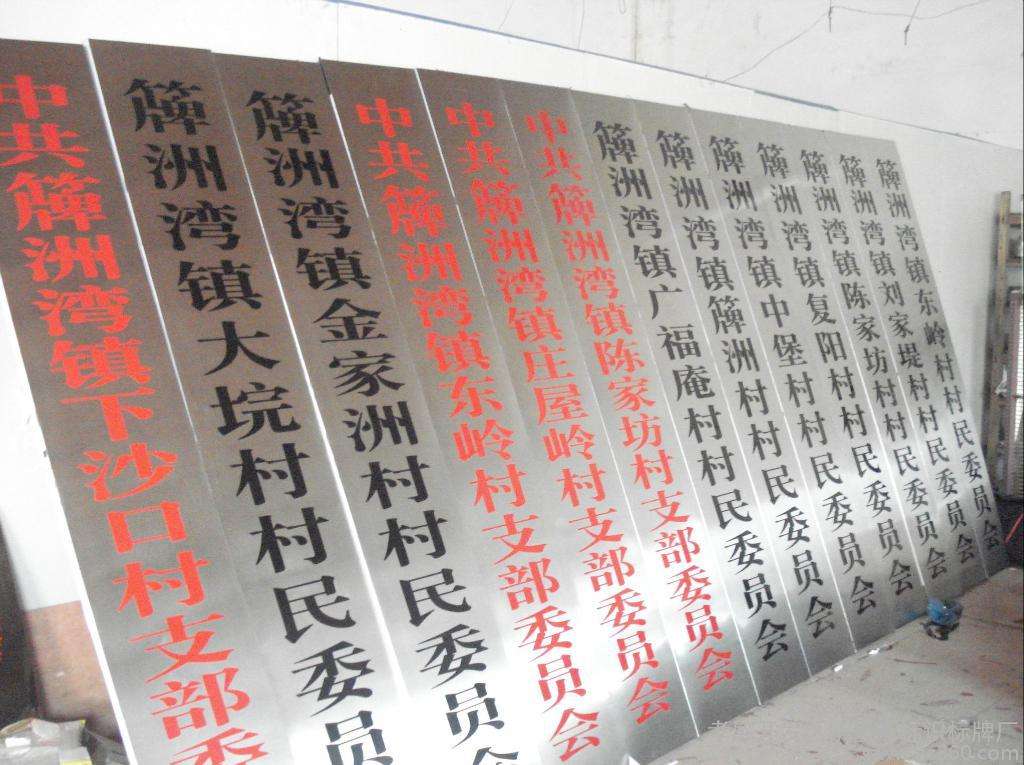 中共簰洲湾镇下沙口村支部委
簰洲湾镇大垸村村民委员
簰洲湾镇金家洲村村民委员会
中共簰洲湾镇东岭村支部委员会
中共簰洲湾镇庄屋岭村支部委员会
中共簰洲湾镇陈家坊村支部委员会
簰洲湾镇广福庵村村民委员会
簰洲湾镇簰洲村村民委员会
簰洲湾镇中堡村村民委员会
簰洲湾镇复阳村村民委员会
簰洲湾镇陈家坊村村民委员会
簰洲湾镇刘家堤村村民委员会
簰洲湾镇东岭村村民委员会
标牌厂
60.com